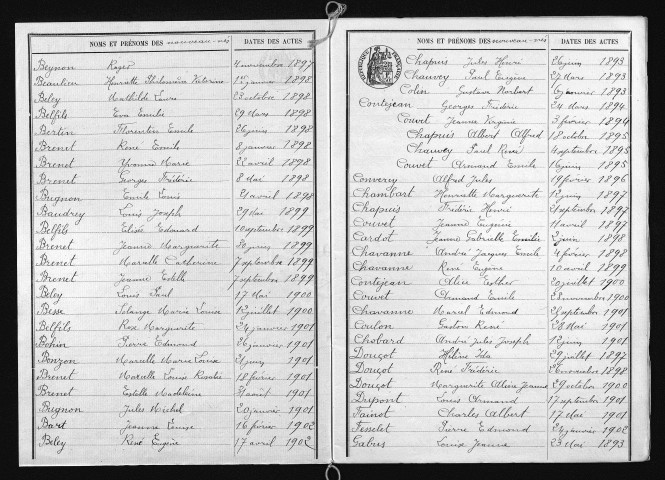 NOMS ET PRÉNOMS DES nouveau-nés DATES DES ACTES
Beynon Roger 4 novembre 1897
Beaulieu Henriette Philomène Victorine 1er janvier 1898
Beley Mathilde Laure 23 octobre 1898
Belfils Eva Emilie 29 Mars 1898
Bertin Florentin Emile 26 1898
Brenet René Emile 8 janvier 1898
Brenet Yvonne Marie 22 avril 1898
Brenet Georges Frédéric 8 Mai 1898
Bugnon Emile Louis 21 avril 1898
Baudrey Louis Joseph 29 Mai 1899
Belfils Elisée Edouard 10 septembre 1899
Brenet Jeanne Marguerite 1899
Brenet Marcelle Catherine 7 septembre 1899
Brenet Jeanne Estelle 7 septembre 1899
Beley Louis Paul 17 Mai 1900
Besse Solange Marie Louise 12 juillet 1900
Belfils Rose Marguerite 24 janvier 1901
Bohin Pierre Edmond 26 janvier 1901
Bonzon Marcelle Marie Louise 1901
Brenet Marcelle Louise Rosalie 18 février 1901
Brenet Estelle Madeleine 1901
Bugnon Jules Michel 20 janvier 1901
Bart Jeanne Louise 16 février 1902
Beley René Eugène 17 avril 1902
NOMS ET PRÉNOMS DES nouveau-nés DATES DES ACTES
Chapuis Jules Henri 26 juin 1893
Chauvey Paul Eugène 27 Mars 1893
Colin Gustave Norbert 6 janvier 1893
Contejean Georges Frédéric 24 Mars 1894
Couvet Jeanne Virginie 3 février 1894
Chapuis Albert Alfred 18 octobre 1895
Chauvey Paul René 4 septembre 1895
Couvet Armand Emile 16 juin 1895
Converey Alfred Jules 19 février 1896
Chambart Henriette Marguerite 12 juin 1897
Chapuis Frédéric Henri 21 septembre 1897
Couvet Jeanne Eugénie 11 avril 1897
Cardot Jeanne Gabrielle Emilie 2 juin 1898
Chavanne André Jacques Emile 4 février 1898
Chavanne René Eugène 10 avril 1899
Contejean Alice Esther 20 juillet 1900
Couvet Armand Emile 28 novembre 1900
Chavanne Marcel Edmond 21 septembre 1901
Coulon Gaston René 28 Mai 1901
Chobard André Jules Joseph 12 juin 1901
Dougot Hélène Ida 29 juillet 1897
Dougot René Frédéric 28 novembre 1898
Dougot Marguerite Aline Jeanne 29 octobre 1900
Dupont Louis Armand 17 septembre 1901
Fainot Charles Albert 17 Mai 1901
Fesselet Pierre Edmond 24 janvier 1902
Gabus Louise Jeanne 23 Mai 1893